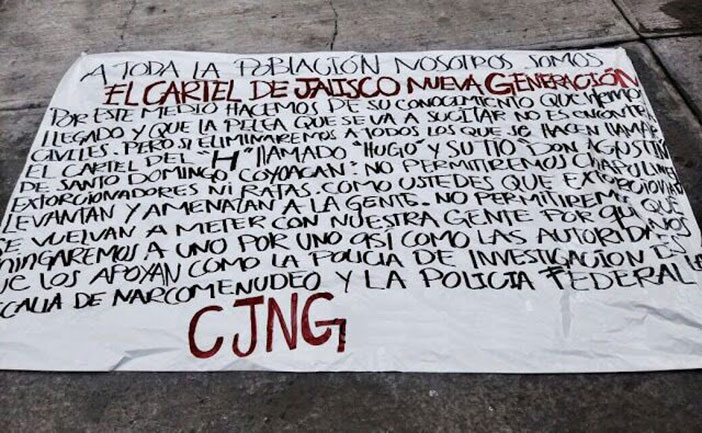 A TODA LA POBLACIÓN NOSOTROS SOMOS
EL CARTEL DE JALISCO NUEVA GENERACIÓN
POR ESTE MEDIO HACEMOS DE SU CONOCIMIENTO QUE HEMOS
LLEGADO Y QUE LA PELEA QUE SE VA A SUCITAR NO ES ENCONTRA
CIVILES. PERO SI ELIMINAREMOS A TODOS LOS QUE SE HACEN LLAMAR
EL CARTEL DEL "H" LLAMADO "HUGO" Y SU TIO "DON AGUSTIN"
DE SANTO DOMINGO COYOACAN: NO PERMITIREMOS CHAPULINES
EXTORCIONADORES NI RATAS. COMO USTEDES QUE EXTORCIONAN
LEVANTAN Y AMENAZAN A LA GENTE. NO PERMITIREMOS QUE
SE VUELVAN A METER CON NUESTRA GENTE POR QUE NOS
CHINGAREMOS A UNO POR UNO ASÍ COMO LAS AUTORIDADES
QUE LOS APOYAN COMO LA POLICIA DE INVESTIGACION DE LA
FISCALIA DE NARCOMENUDEO Y LA POLICIA FEDERAL
CJNG